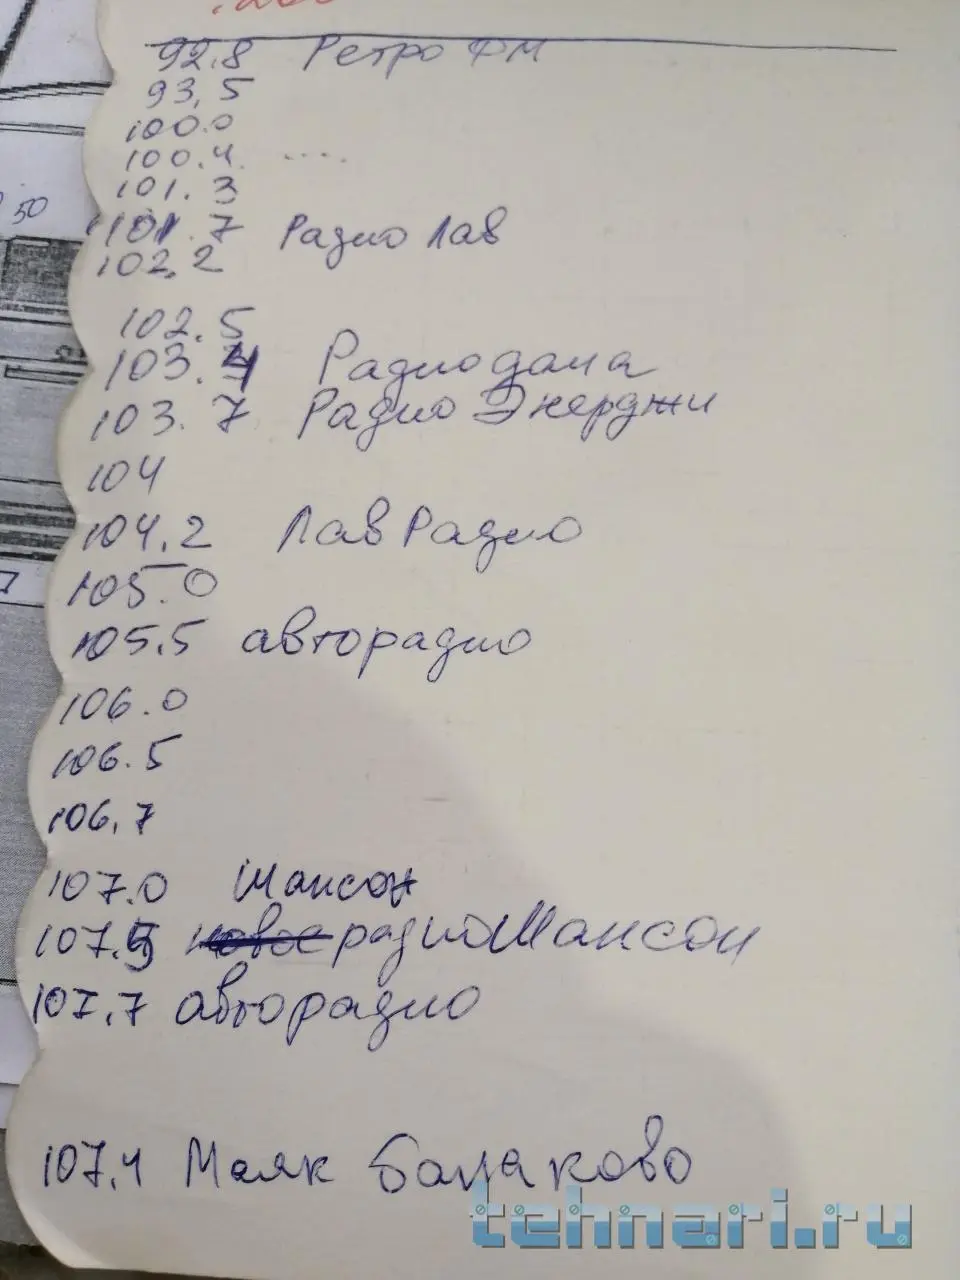 92.8 Ретро ФМ
93,5
100.0
100.4. ....
101.3
50
101.7 Радио Лав
102.2
102.5
103.4 Радио дача
103.7 Радио Энерджи
104
104.2 Лав Радио
105.0
105.5 авторадио
106.0
106.5
106.7
107.0 Шансон
107.5 новое радио Шансон
107.7 авторадио
107.4 Маяк Балаково
tehnari.ru